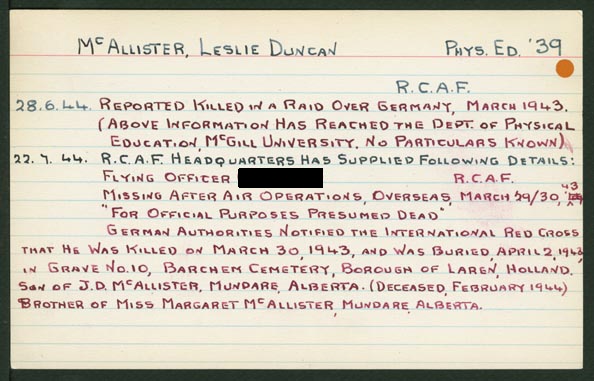 McALLISTER, LESLIE DUNCAN PHYS. ED. '39
R.C.A.F.
28.6.44. REPORTED KILLED IN A RAID OVER GERMANY, MARCH 1943.
(ABOVE INFORMATION HAS REACHED THE DEPT. OF PHYSICAL
EDUCATION, McGILL UNIVERSITY. NO PARTICULARS KNOWN)
22.7.44. R.C.A.F. HEADQUARTERS HAS SUPPLIED FOLLOWING DETAILS:
FLYING OFFICER R.C.A.F.
MISSING AFTER AIR OPERATIONS, OVERSEAS, MARCH 29/30, '43
"FOR OFFICIAL PURPOSES PRESUMED DEAD"
GERMAN AUTHORITIES NOTIFIED THE INTERNATIONAL RED CROSS
THAT HE WAS KILLED ON MARCH 30, 1943, AND WAS BURIED, APRIL 2, 1943,
IN GRAVE NO. 10, BARCHEM CEMETERY, BOROUGH OF LAREN, HOLLAND.
SON OF J.D. McALLISTER, MUNDARE, ALBERTA. (DECEASED, FEBRUARY 1944)
BROTHER OF MISS MARGARET McALLISTER, MUNDARE, ALBERTA.